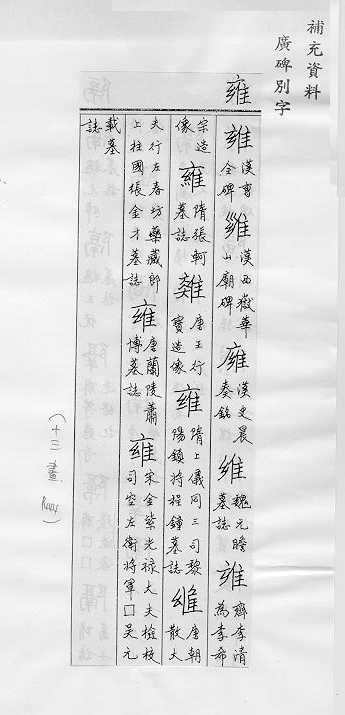 補充資料
廣碑別字
雍
雍漢曹全碑雍漢西嶽華山廟碑雍漢史晨奏銘雍魏元瞻墓誌雍齊李清為李希
宗造像雍隋張軻墓誌雍唐王行寶造像雍隋上儀同三司黎陽鎮將程鐘墓誌雍唐朝散大
夫行左春坊藥藏郎上柱國張金才墓誌雍唐蘭陵蕭博墓誌雍宋金紫光祿大夫檢校司空左衛將軍□吴元
載墓誌
(十三畫 R444)